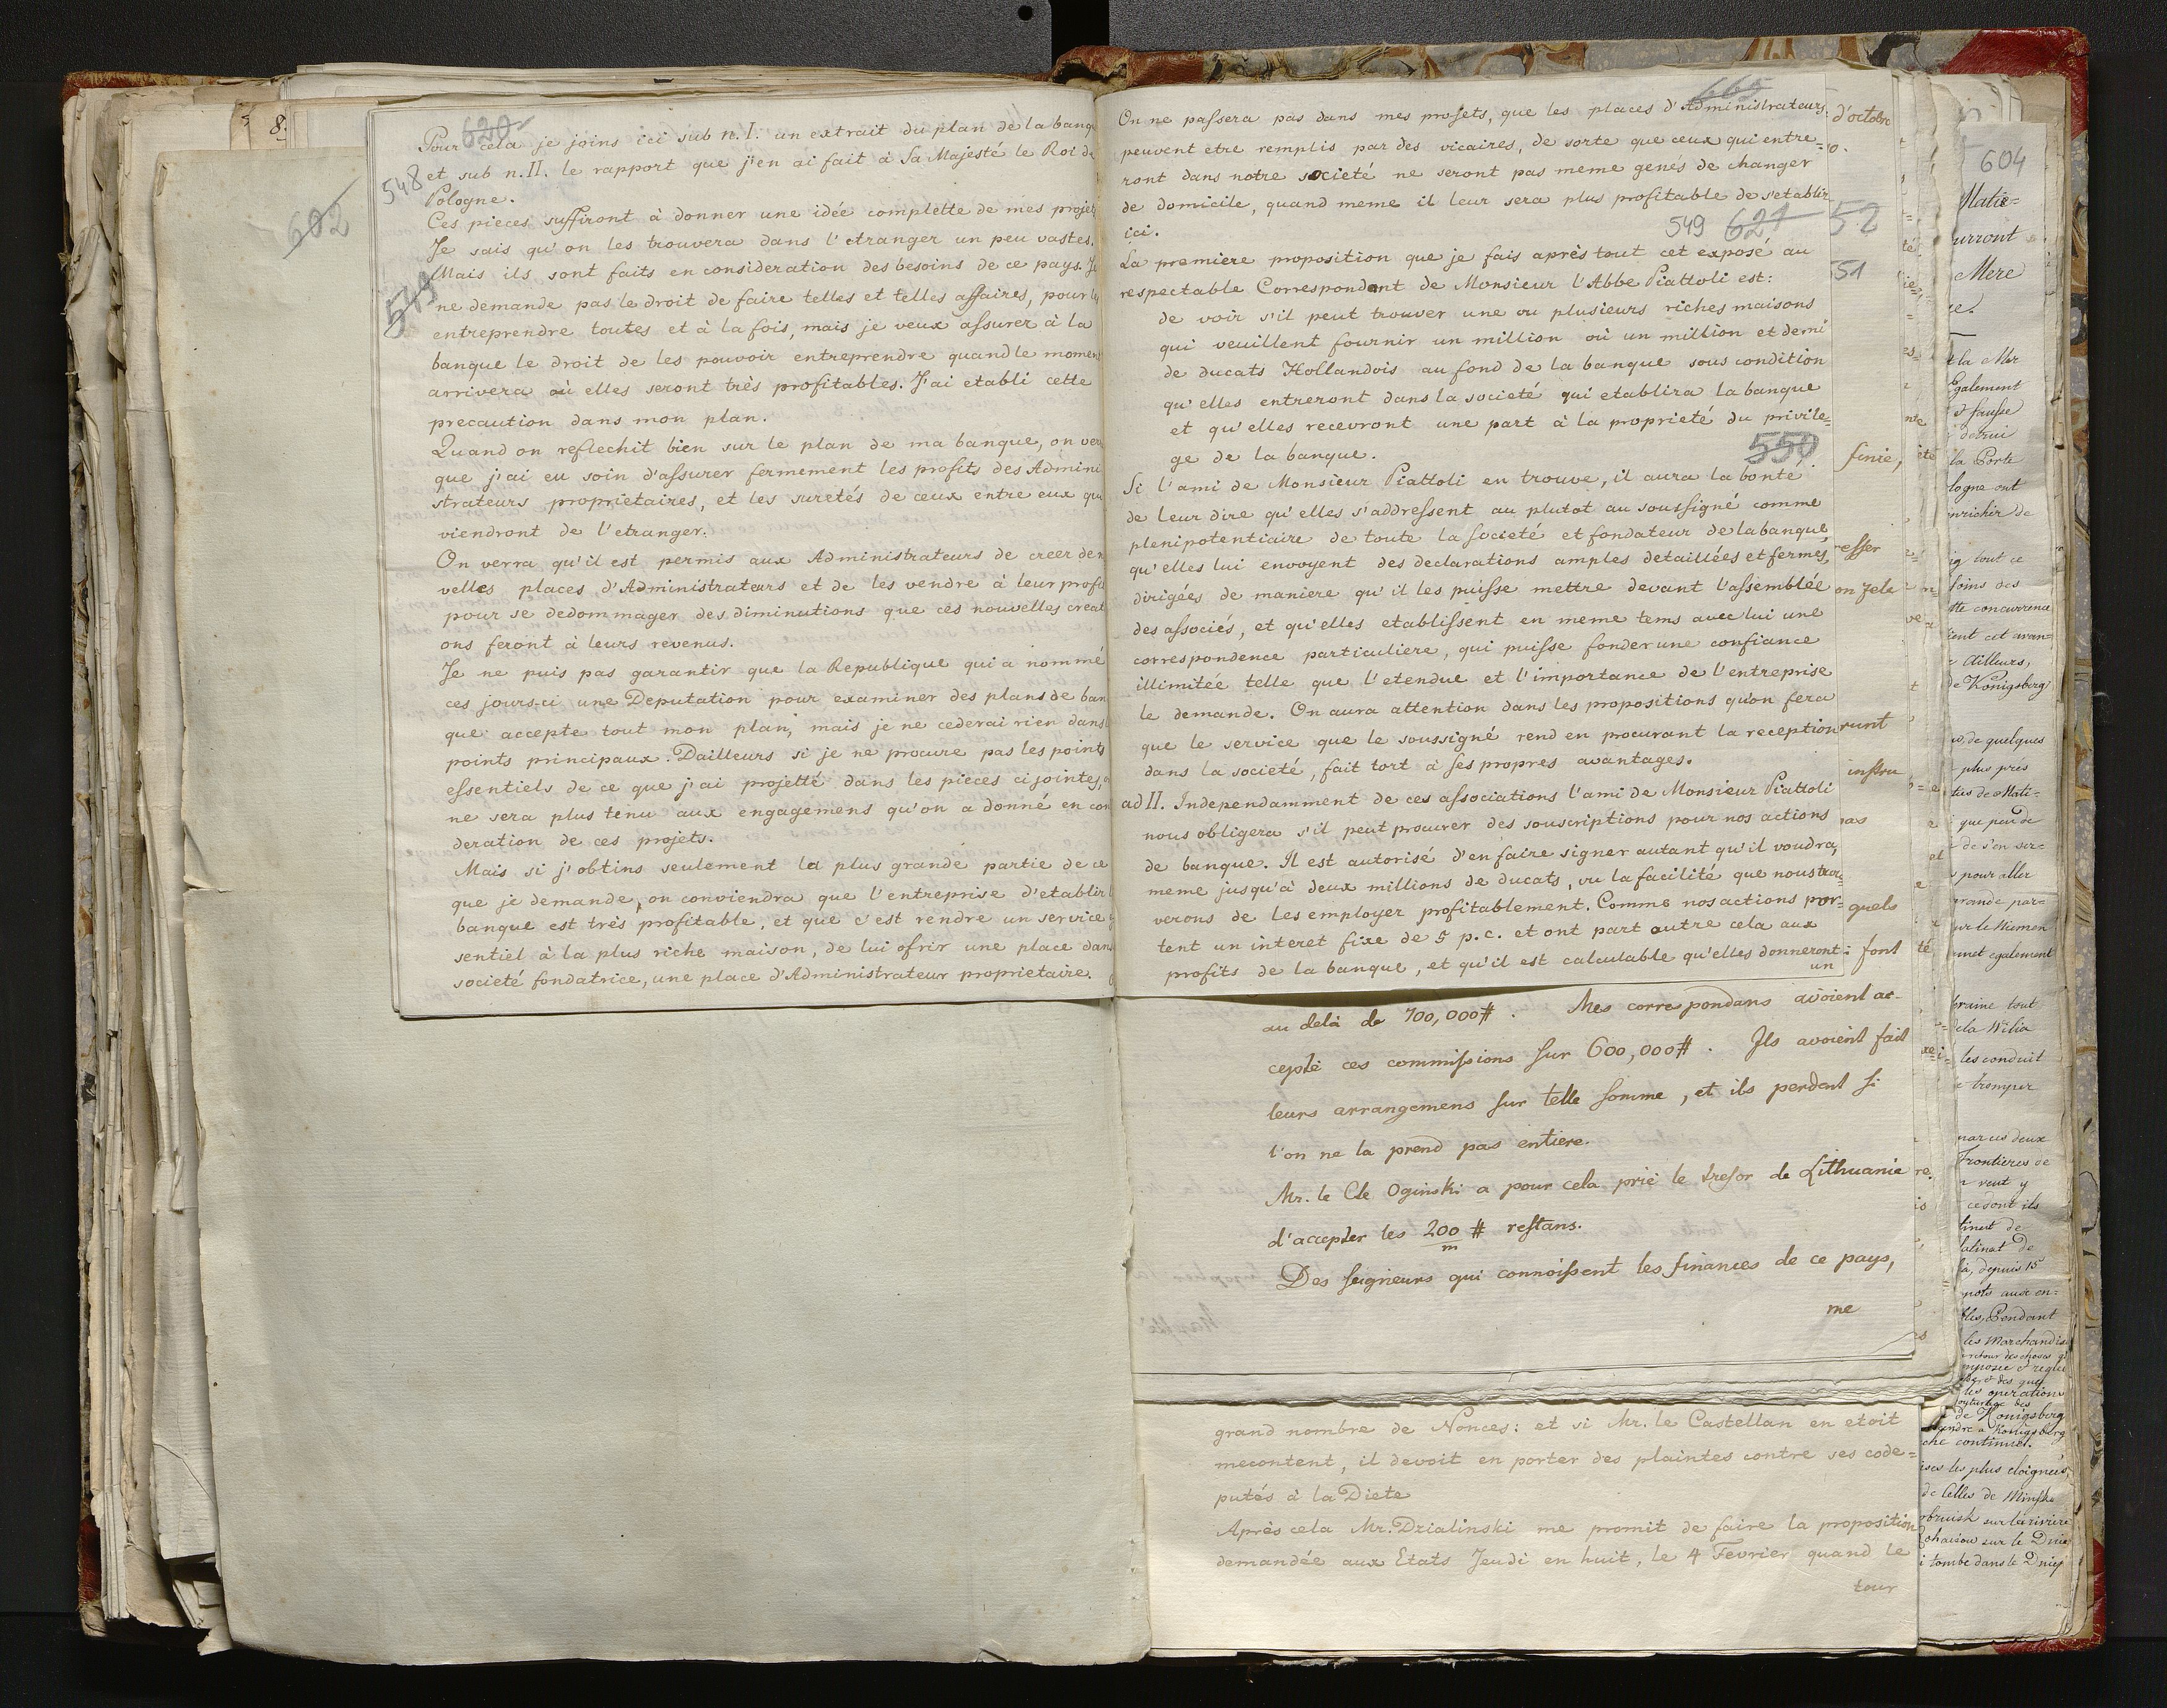 8.
602
620
548
549
Pour cela je joins ici sub n. I. un extrait du plan de la banq
et sub n. II. le rapport que j'en ai fait à Sa Majesté le Roi de
Pologne.
Ces pieces suffiront à donner une idée complette de mes projet
Je sais qu'on les trouvera dans l'etranger un peu vastes.
Mais ils sont faits en consideration des besoins de ce pays. Je
ne demande pas le droit de faire telles et telles affaires, pour les
entreprendre toutes et à la fois, mais je veux assurer à la
banque le droit de les pouvoir entreprendre quand le momen
arrivera où elles seront très profitables. J'ai etabli cette
precaution dans mon plan.
Quand on reflechit bien sur le plan de ma banque, on ver
que j'ai eu soin d'assurer fermement les profits des Admini
strateurs proprietaires, et les suretés de ceux entre eux qui
viendront de l'etranger.
On verra qu'il est permis aux Administrateurs de creer de n
velles places d'Administrateurs et de les vendre à leur profit
pour se dedommager des diminutions que ces nouvelles creat
ons feront à leurs revenus.
Je ne puis pas garantir que la Republique qui a nommé
ces jours-ci une Deputation pour examiner des plans de ban
que accepte tout mon plan, mais je ne cederai rien dans
points principaux. Dailleurs si je ne procure pas les points
essentiels de ce que j'ai projetté dans les pieces ci jointes,
ne sera plus tenu aux engagemens qu'on a donné en con
deration de ces projets.
Mais si j'obtins seulement la plus grande partie de ce
que je demande, on conviendra que l'entreprise d'etablir
banque est très profitable, et que c'est rendre un service
sentiel à la plus riche maison, de lui ofrir une place dan
societé fondatrice, une place d'Administrateur proprietaire.
665
On ne passera pas dans mes projets, que les places d'Administrateurs
peuvent etre remplis par des vicaires, de sorte que ceux qui entre=
ront dans notre societé ne seront pas meme genés de changer
de domicile, quand meme il leur sera plus profitable de s'etablir
ici.
549 621
La premiere proposition que je fais après tout cet exposé au
respectable Correspondant de Monsieur l'Abbe Piattoli est:
de voir s'il peut trouver une ou plusieurs riches maisons
qui veuillent fournir un million où un million et demi
de ducats Hollandois au fond de la banque sous condition
qu'elles entreront dans la societé qui etablira la banque
et qu'elles recevront une part à la proprieté du privile=
ge de la banque.
550
Si l'ami de Monsieur Piattoli en trouve, il aura la bonté
de leur dire qu'elles s'addressent au plutot au soussigné comme
plenipotentiaire de toute la societé et fondateur de la banque,
qu'elles lui envoyent des declarations amples detaillées et fermes,
dirigées de maniere qu'il les puisse mettre devant l'assemblée
des associés, et qu'elles etablissent en meme tems avec lui une
correspondence particuliere, qui puisse fonder une confiance
illimitée telle que l'etendue et l'importance de l'entreprise
le demande. On aura attention dans les propositions qu'on fera
que le service que le soussigné rend en procurant la reception
dans la societé, fait tort à ses propres avantages.
ad II. Independamment de ces associations l'ami de Monsieur Piattoli
nous obligera s'il peut procurer des souscriptions pour nos actions
de banque. Il est autorisé d'en faire signer autant qu'il voudra,
meme jusqu'à deux millions de ducats, vu la facilité que nous trou=
verons de les employer profitablement. Comme nos actions por=
tent un interet fixe de 5 p.c. et ont part outre cela aux
profits de la banque, et qu'il est calculable qu'elles donneront
un
d'octobre
52
551
finie,
resser
on zele
runt
instru
pas
quels
font
au delà de 700,000 #. Mes correspondans avoient ac-
cepté ces commissions sur 600,000 #. Ils avoient fait
leurs arrangemens sur telle somme, et ils perdent si
l'on ne la prend pas entiere.
Mr. le Cte Oginski a pour cela prié le tresor de Lithuanie
d'accepter les 200/m # restans.
Des seigneurs qui connoissent les finances de ce pays,
me
grand nombre de Nonces: et si Mr. le Castellan en etoit
mecontent, il devoit en porter des plaintes contre ses code=
putés à la Diete
Après cela Mr. Dzialinski me promit de faire la proposition
demandée aux Etats Jeudi en huit, le 4 Fevrier quand le
tour
604
Matie=
urront
Mere
t la Mer
Egalement
la Porte
logne ont
enrichir de
tout ce
soins des
tte concurrence
ient cet avan=
Ailleurs,
de Königsberg
de quelques
plus près
que peu de
pour aller
grande par=
sur le Niemen
met egalement
la Wilia
les conduit
tromper
par ces deux
Frontieres de
veut y
ce dont ils
latinat de
depuis 15
Pendant
les Marchandis
les operations
de Konigsberg
che continuel.
ises les plus eloignées,
de Celles de Minske
obruisk sur la riviere
i tombe dans le Dniep